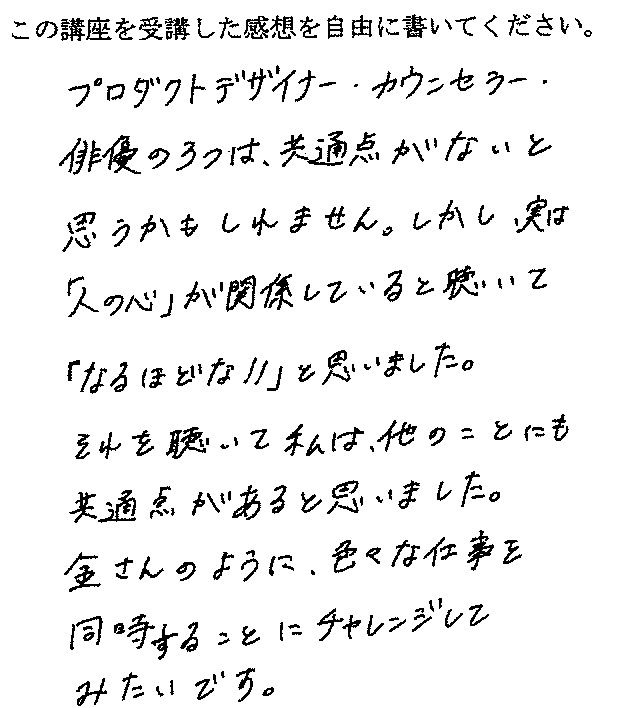 この講座を受講した感想を自由に書いてください。
プロダクトデザイナー・カウンセラー・
俳優の3つは、共通点がないと
思うかもしれません。しかし、実は
「人の心」が関係していると聴いて
「なるほどな!!」と思いました。
それを聴いて私は、他のことにも
共通点があると思いました。
金さんのように、色々な仕事を
同時することにチャレンジして
みたいです。